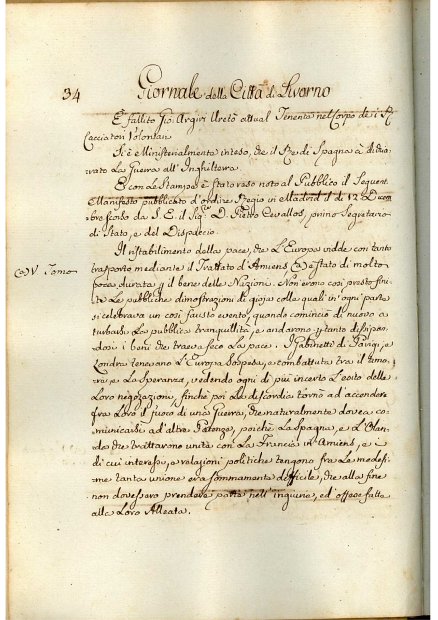 34 Giornale della Città di Livorno
È fallito Gio. Argiri Uretò attual Tenente nel Corpo de i R.
Cacciatori Volontari
Si è Ministerialmente inteso, che il Re di Spagna à dichia-
rato la Guerra all'Inghilterra
E con le Stampe è stato reso noto al Pubblico il Seguente
Manifesto pubblicato d'ordine Regio in Madrid il dì 12 Dicem-
bre scorso da S. E. il Sig.r D. Pietro Cevallos, primo Segretario
di Stato, e del Dispaccio.
Il ristabilimento della pace, che l'Europa vidde con tanto
(a) V. Tomo
trasporto mediante il Trattato d'Amiens (a) è stato di molto
poca durata p il bene delle Nazioni. Non erono così presto fini-
te Le pubbliche dimostrazioni di gioja colle quali in ogni parte
si celebrava un così fausto evento, quando cominciò di nuovo a
turbarsi La pubblica tranquillità, e andarono p tanto dissipan-
dosi i beni che traeva seco La pace. I Gabinetti di Parigi, e
Londra tenevano L'Europa Sospesa, e combattuta tra il timo-
re, e La Speranza, vedendo ogni dì più incerto L'esito delle
Loro negoziazioni, finchè poi La discordia tornò ad accendere
fra Loro il fuoco di una Guerra, che naturalmente dovea co-
municarsi ad altre Potenze, poichè La Spagna, e L'Olan-
da che trattarono unite con La Francia in Amiens, e i
di cui interessi, e relazioni politiche tengono fra Le medesi-
me tanta unione era sommamente difficile, che alla fine
non dovessero prendere parte nell'ingiurie, ed offese fatte
alla Loro Alleata.